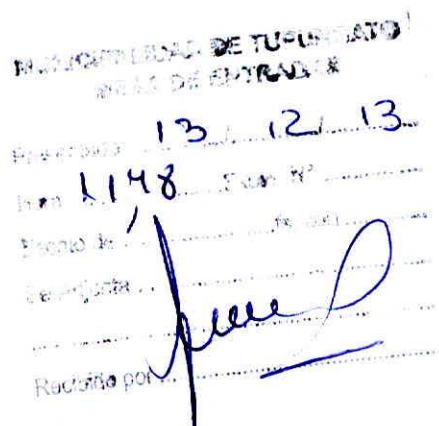 MUNICIPALIDAD DE TUPUNGATO
MESA DE ENTRADAS
13 / 12 / 13
1148 Exp. Nº
Se adjunta
Recibido por